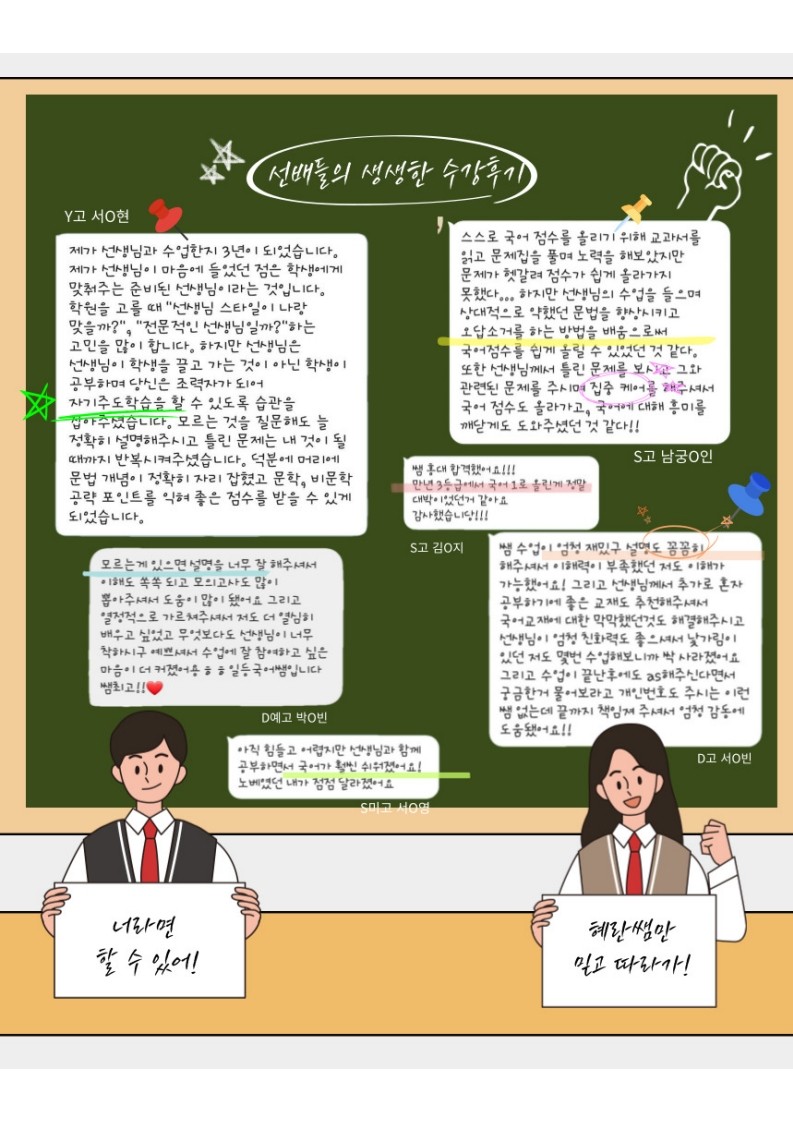 선배들의 생생한 수강후기
Y고 서O현
제가 선생님과 수업한지 3년이 되었습니다.
제가 선생님이 마음에 들었던 점은 학생에게
맞춰주는 준비된 선생님이라는 것입니다.
학원을 고를 때 "선생님 스타일이 나랑
맞을까?", "전문적인 선생님일까?"하는
고민을 많이 합니다. 하지만 선생님은
선생님이 학생을 끌고 가는 것이 아닌 학생이
공부하며 당신은 조력자가 되어
자기주도학습을 할 수 있도록 습관을
잡아주셨습니다. 모르는 것을 질문해도 늘
정확히 설명해주시고 틀린 문제는 내 것이 될
때까지 반복시켜주셨습니다. 덕분에 머리에
문법 개념이 정확히 자리 잡혔고 문학, 비문학
공략 포인트를 익혀 좋은 점수를 받을 수 있게
되었습니다.
스스로 국어 점수를 올리기 위해 교과서를
읽고 문제집을 풀며 노력을 해보았지만
문제가 헷갈려 점수가 쉽게 올라가지
못했다... 하지만 선생님의 수업을 들으며
상대적으로 약했던 문법을 향상시키고
오답소거를 하는 방법을 배움으로써
국어점수를 쉽게 올릴 수 있었던 것 같다.
또한 선생님께서 틀린 문제를 보시고 그와
관련된 문제를 주시며 집중 케어를 해주셔서
국어 점수도 올라가고, 국어에 대해 흥미를
깨닫게도 도와주셨던 것 같다!!
S고 남궁O인
쌤 홍대 합격했어요!!!
만년 3등급에서 국어 1로 올린게 정말
대박이었던거 같아요
감사했습니당!!!
S고 김O지
모르는게 있으면 설명을 너무 잘 해주셔서
이해도 쏙쏙 되고 모의고사도 많이
뽑아주셔서 도움이 많이 됐어요 그리고
열정적으로 가르쳐주셔서 저도 더 열심히
배우고 싶었고 무엇보다도 선생님이 너무
착하시구 예쁘셔서 수업에 잘 참여하고 싶은
마음이 더 커졌어용 ㅎㅎ 일등국어쌤입니다
쌤최고!!❤️
D예고 박O빈
쌤 수업이 엄청 재밌구 설명도 꼼꼼히
해주셔서 이해력이 부족했던 저도 이해가
가능했어요! 그리고 선생님께서 추가로 혼자
공부하기에 좋은 교재도 추천해주셔서
국어교재에 대한 막막했던것도 해결해주시고
선생님이 엄청 친화력도 좋으셔서 낯가림이
있던 저도 몇번 수업해보니까 싹 사라졌어요
그리고 수업이 끝난후에도 as해주신다면서
궁금한거 물어보라고 개인번호도 주시는 이런
쌤 없는데 끝까지 책임져 주셔서 엄청 감동에
도움됐어요!!
D고 서O빈
아직 힘들고 어렵지만 선생님과 함께
공부하면서 국어가 훨씬 쉬워졌어요!
노베였던 내가 점점 달라졌어요
S미고 서O영
너라면
할 수 있어!
혜란쌤만
믿고 따라가!